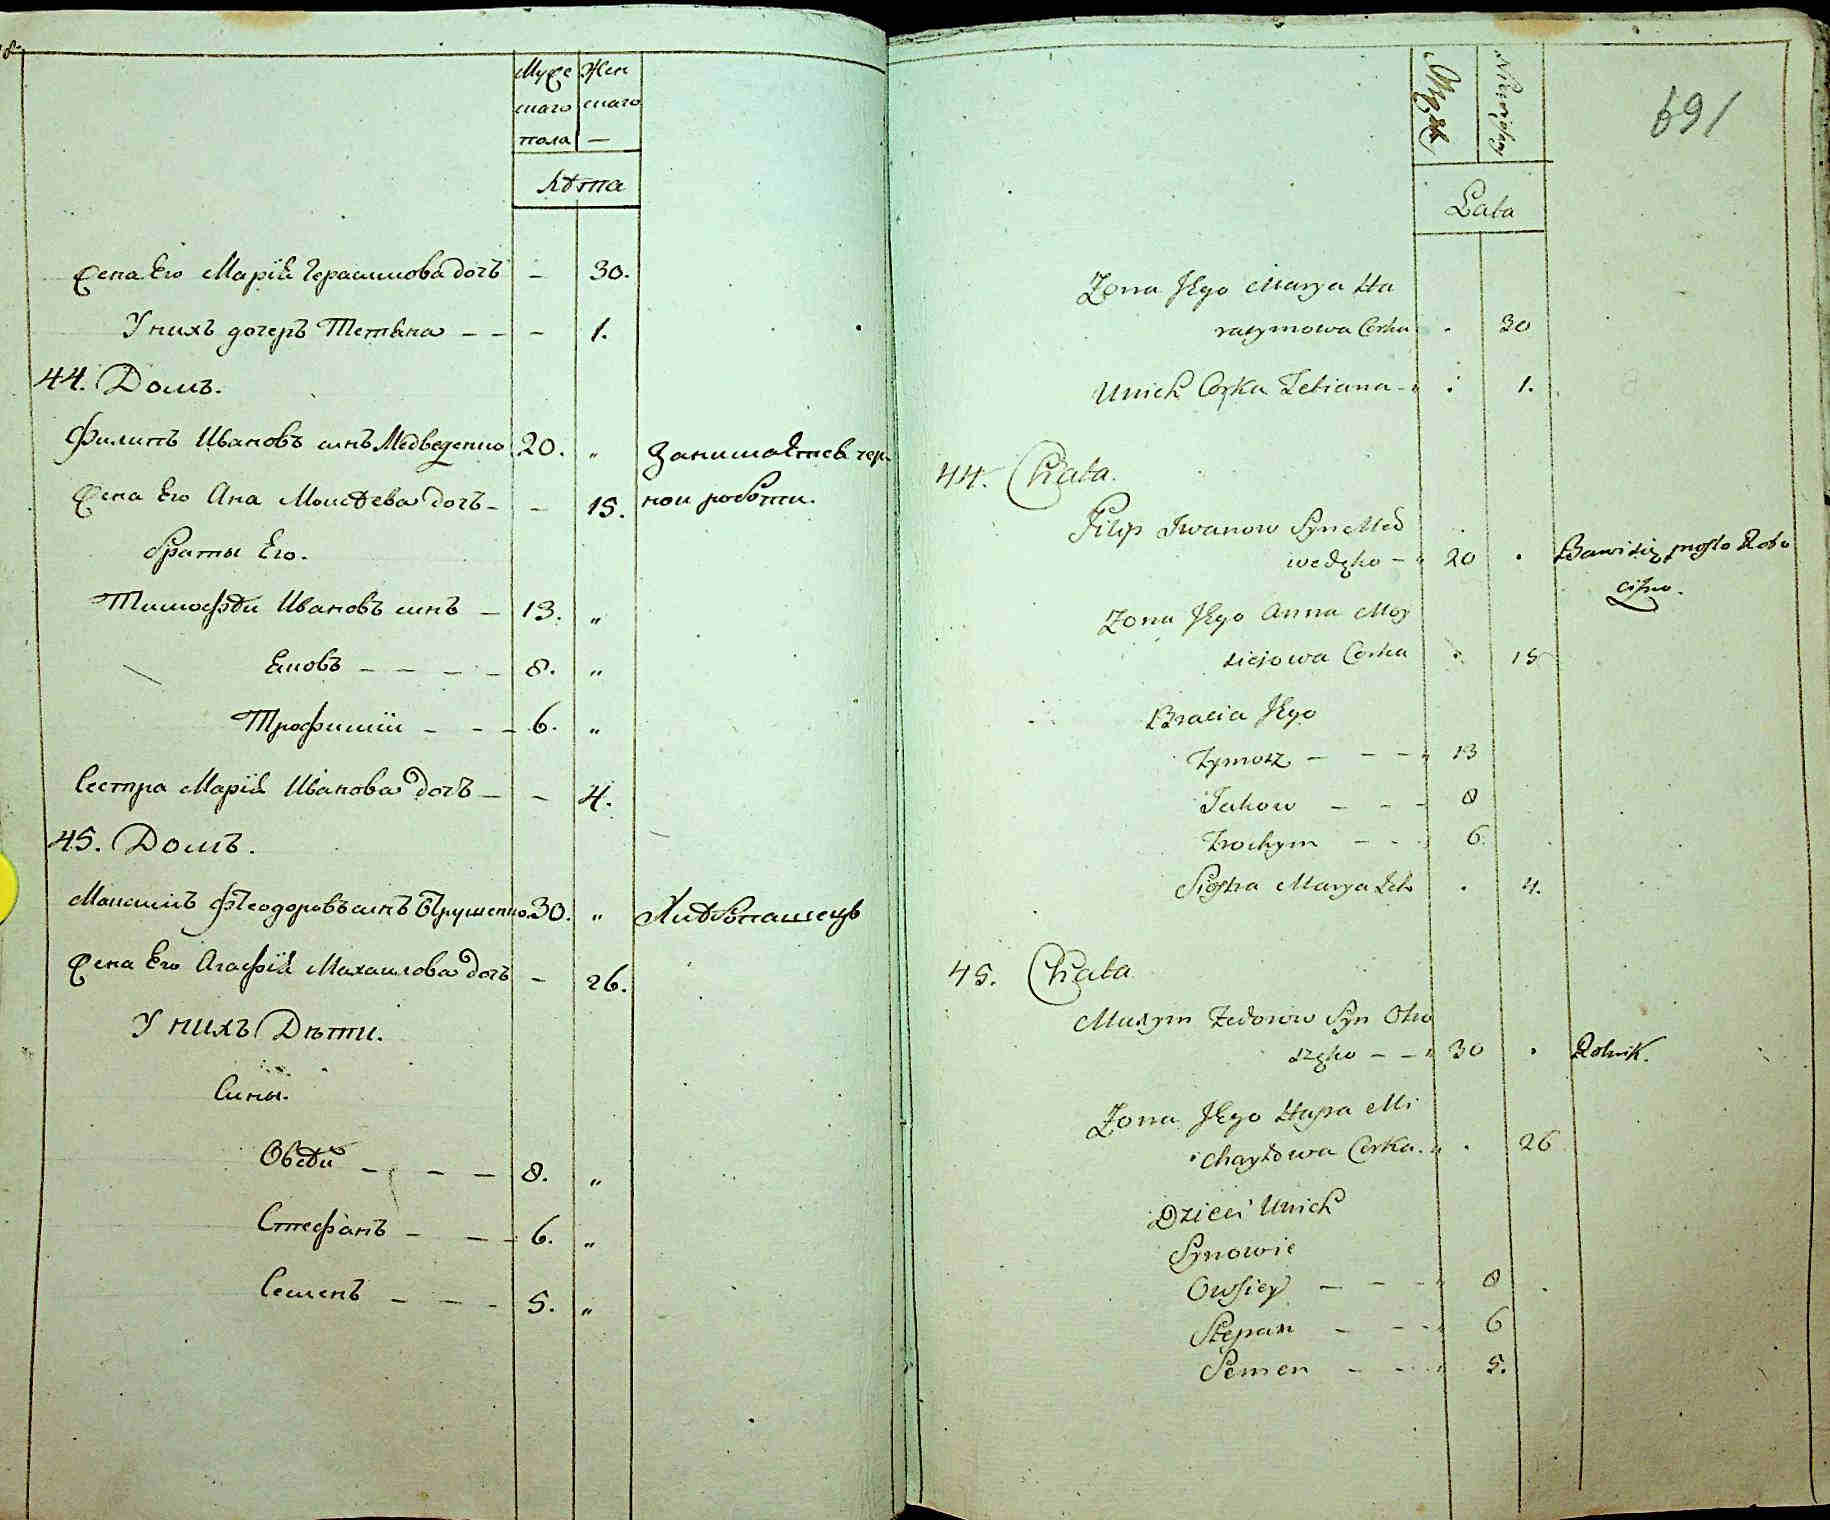 Муже Жен
скаго скаго
пола —
Лѣта
Жена Его Марія Герасимова дочъ — 30.
У нихъ дочеръ Тетяна — — — 1.
44. Домъ.
Филипъ Ивановъ синъ Медведенко 20. „ Занимается чер
Жена Его Ана Моисѣева дочъ — — 15. ной роботи.
Браты Его.
Тимофѣй Ивановъ синъ — 13. „
Яковъ — — — — 8. „
Трофимій — — — 6. „
Сестра Марія Иванова дочъ — — 4.
45. Домъ.
Максимъ Феодоровъ синъ 30. „ Хлѣбопашецъ
Жена Его Агафія Михаилова дочъ — 26.
У нихъ Дѣти.
Сины.
Овсѣй — — — 8. „
Стефанъ — — — 6. „
Семенъ — — — 5. „
691
Męzk
Lata
Zona Jego Marya Ha
rasymowa Corka . 30
Unich Corka Tetiana - . 1.
44. Chata.
Filip Iwanow Syn Med
wedęko - „ 20 . Bawi się prosto Robo
cizno.
Zona Jego Anna Moy
siejowa Corka . 15
Bracia Jego
Tymosz — — — „ 13
Jakow — — — 8
Trochym — — „ 6.
Siostra Marya Let . 4.
45. Chata
Maxym Fedorow Syn
30 . Rolnik.
Zona Jego Hapa Mi
chayłowa Corka. „ . 26
Dzieci Unich
Synowie
Owsiey — — — „ 8 .
Stepan — — „ 6
Semen — — „ 5.